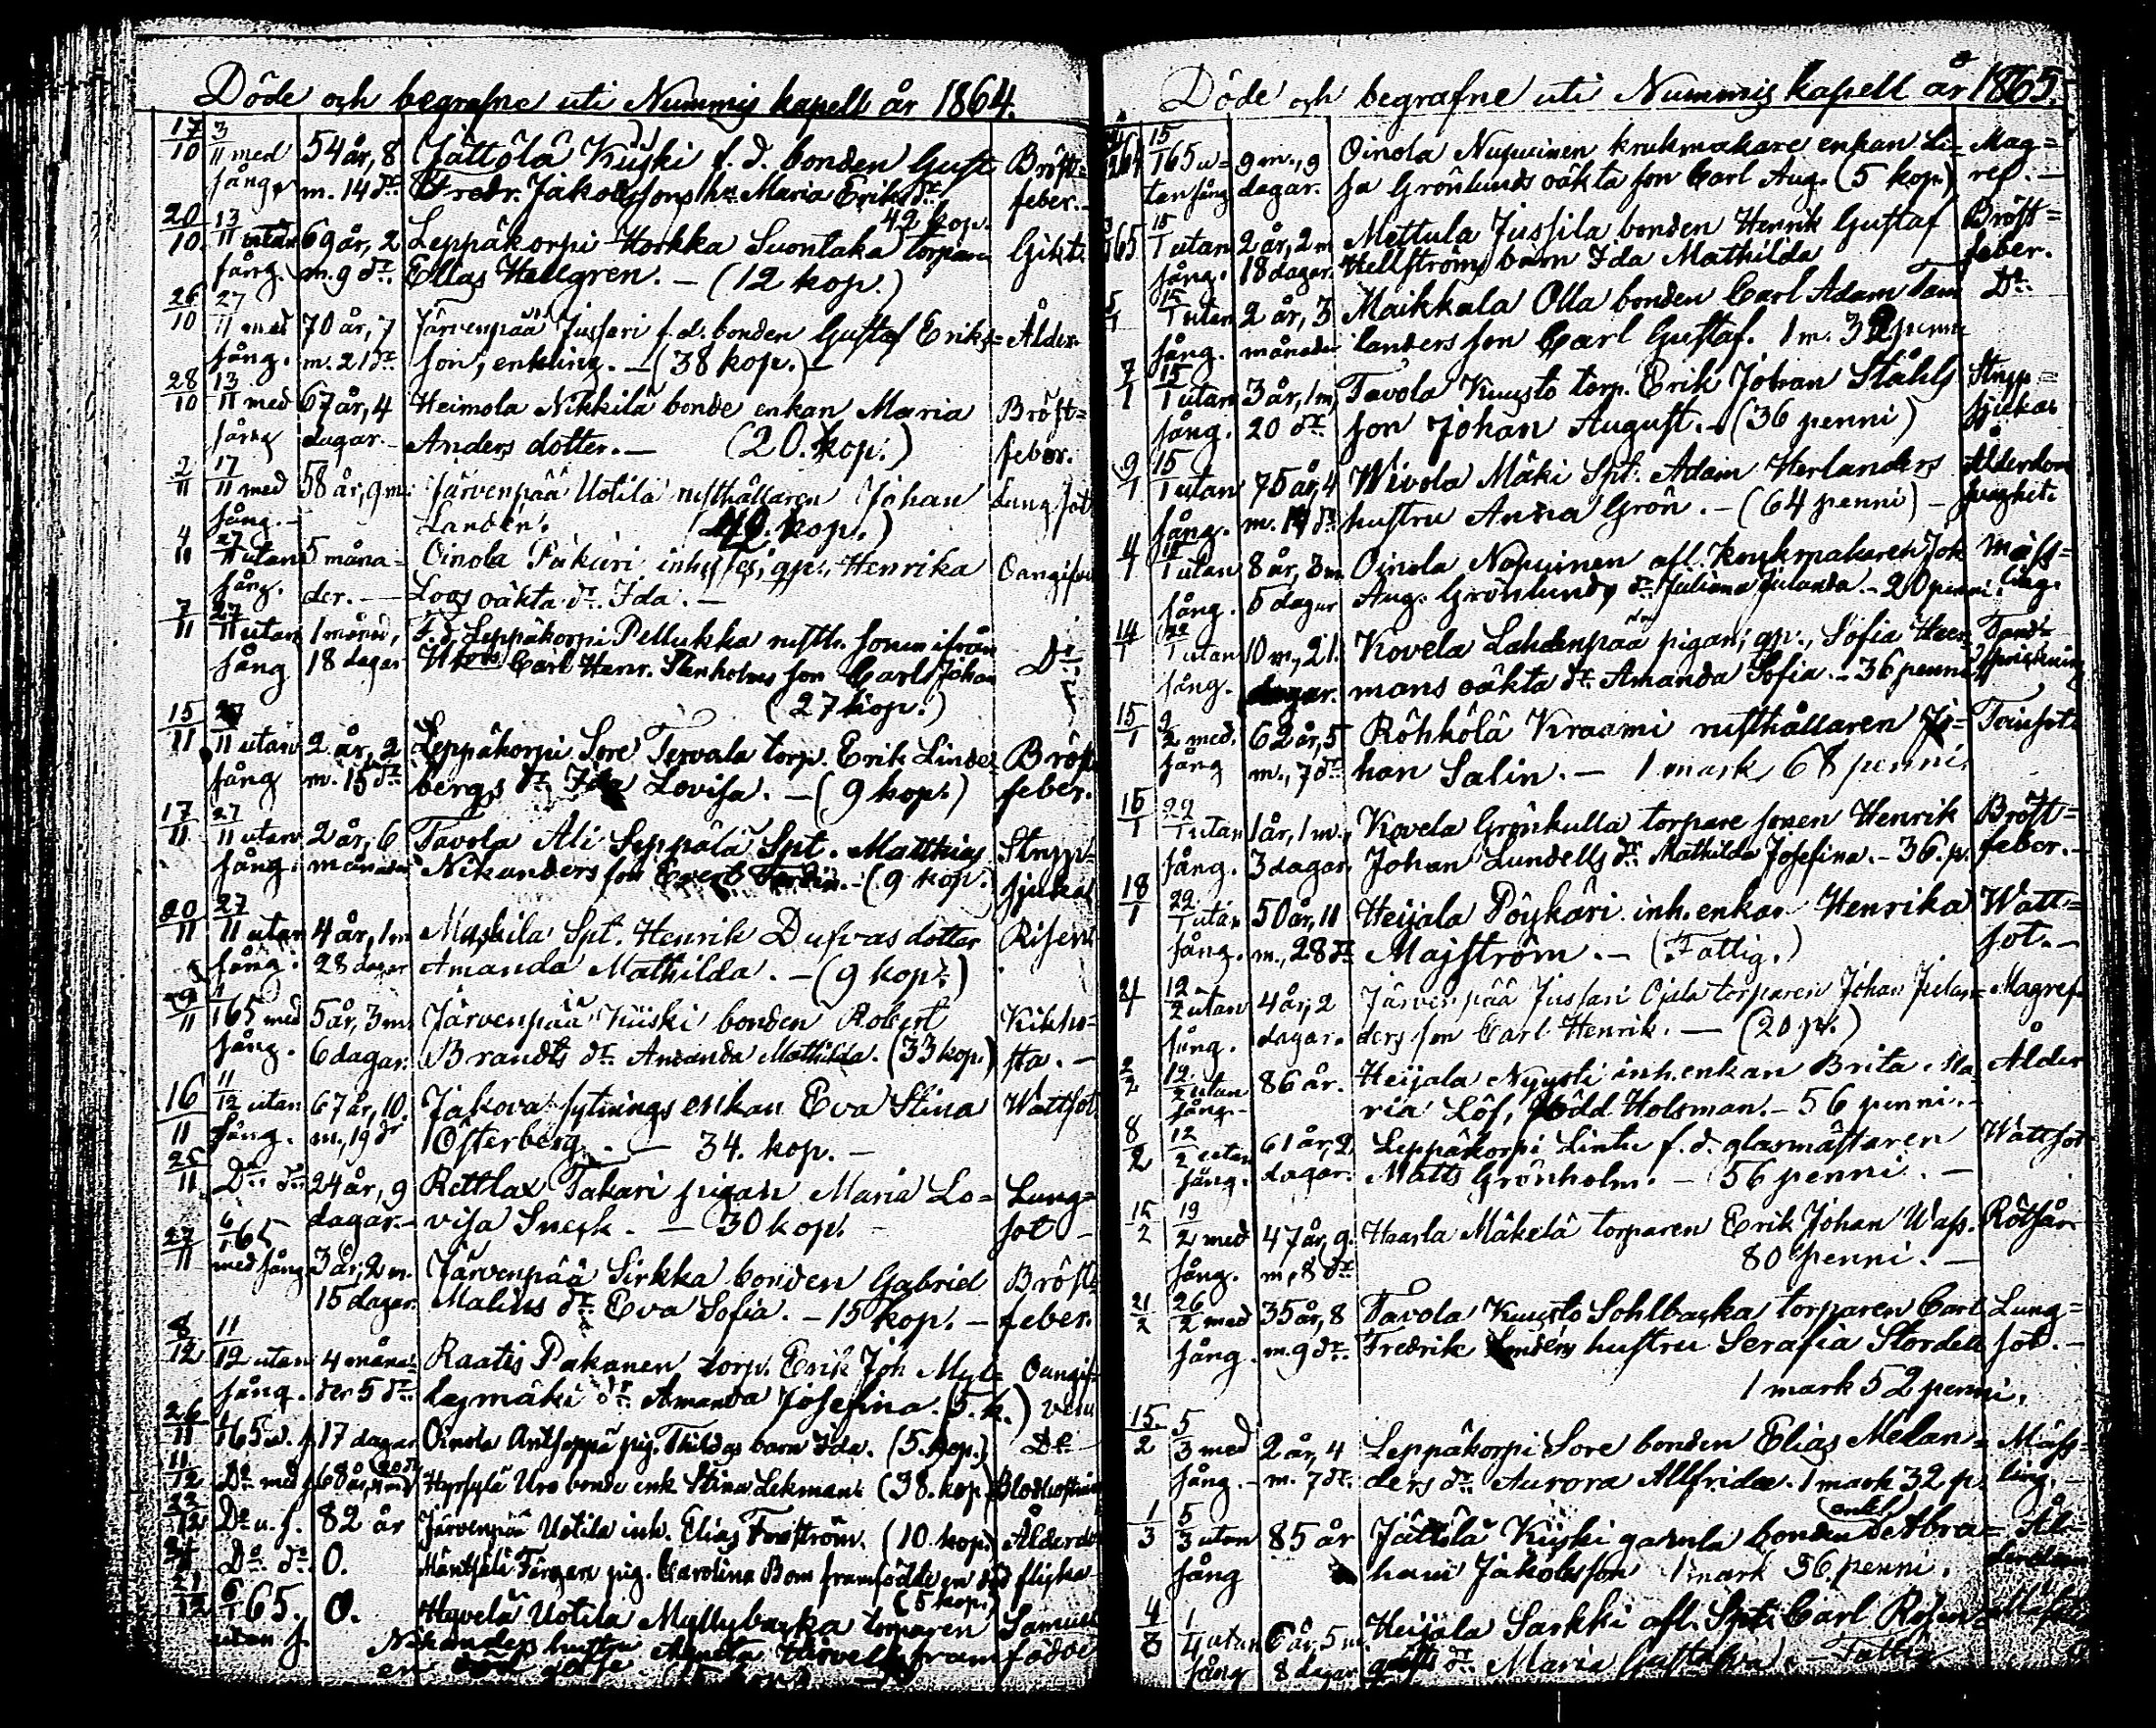 Döde och begrafne uti Nummis kapell år 1864.
17/10 3/11 med 54 år, 8 Jättölä Kiiski f. d. bonden Gust. Bröst=
sång m. 14 dr. Fredr. Jakobssons h. Maria Eriks dr. feber.
42 kop.
20/10 13/11 utan 69 år, 2 Leppäkorpi Horkka Suontaka torparen Gikt.
sång. m. 9 dr. Elias Hallgren. — (12 kop.)
26/10 27/11 med 70 år, 7 Järvenpää Jussari f. d. bonden Gustaf Eriks= Ålder
sång. m. 21 dr son, enkling. — (38 kop.) —
28/10 13/11 med 67 år, 4 Heimola Nikkilä bonde enkan Maria Bröst=
sång dagar. Anders dotter. — (20. kop.) feber.
2/11 17/11 med 58 år, 9 m. Järvenpää Uotila rusthållaren Johan Lungsot
sång. Landén. kop.)
4/11 27/11 utan 5 måna= Oinola Pakari Henrika Oangifven
sång. der. — Loos oäkta dr. Ida. —
7/11 27/11 utan 1 månad, F. d. Leppäkorpi Pellukka rusth. sonen ifrån
sång 18 dagar Carl Henr. Stenholms son Carl Johan Do
(27 kop.)
15/11 27/11 utan 2 år, 2 Leppäkorpi Sore Tervala torp. Erik Linde= Bröst
sång m. 15 dr bergs dr. Ida Lovisa. — (9 kop.) feber.
17/11 27/11 utan 2 år, 6 Tavola Ali Seppälä Spt. Matthias Stryp=
sång. månader Nikanders son — (9 kop.) sjukan
20/11 27/11 utan 4 år, 1 m Maskila Spt. Henrik Dufvas dotter Risen
sång. 28 dagar Amanda Mathilda. — (9 kop.)
9/11 1/1 65 med 5 år, 3 m. Järvenpää Kiiski bonden Robert Kikho=
sång. 6 dagar. Brandts dr. Amanda Mathilda. (33 kop.) sta. —
16/11 11/12 utan 67 år, 10. Jakova sytnings enkan Eva Stina Wattsot
sång. m., 19 dr Österberg. — 34. kop. —
25/11 Do. do. 24 år, 9 Rettlax Takari pigan Maria Lo= Lung=
dagar. — visa Sneck. — 30 kop. sot —
27/11 6/1 65 med sång 3 år, 2 m. Järvenpää Sirkka bonden Gabriel Bröst=
15 dagar. Malins dr. Eva Sofia. — 15 kop. — feber.
8/12 11/12 utan 4 måna= Raatis Pakanen torp. Erik Joh. Myl= Oangif=
sång. der 5 dr. lymäki dr. Amanda Josefina. (5. k.) ven
26/11 1/1 65 u. s. 17 dagar Oinola Antseppä pig. Thildas barn Ida. (5. kop.) Do
11/12 Do med s. 68 år, Hyrsylä Uro bonde enk. Stina Lekman. (38. kop.) Blodhostning
22/12 Do u. s. 82 år Järvenpää Uotila inh. Elias Forsström. (10. kop.) Ålderdom
Do do. 0. Färgare pig. Carolina Bom framfödde en död flicka
(5 kop.)
21/12 6/1 65. 0. Hyvelä Uotila Myllybacka torparen Samuel
utan s. Nikanders hustru Agneta framfödde
en
Döde och begrafne uti Nummis kapell år 1865.
15/1 65 u= 9 m., 9 Oinola Napuinen krukmakare enkan Li= Mag=
tan sång dagar. sa Grönlunds oäkta son Carl Aug. (5 kop.) ref. —
65 15/1 utan 2 år, 2 m Mettula Jussila bonden Henrik Gustaf Bröst=
sång. 18 dagar. Hellströms barn Ida Mathilda feber.
5/1 15/1 utan 2 år, 3 Maikkala Olla bonden Carl Adam Tam Do.
sång. månader landers son Carl Gustaf. 1 m. 32 penni
7/1 15/1 utan 3 år, 1 m, Tavola Kuusto torp. Erik Johan Ståhls Stryp=
sång. 20 dr. son Johan August. — (36 penni) sjukan
9/1 15/1 utan 75 år, 4 Wivola Mäki Spt. Adam Herlanders Ålderdom
sång. m. 14 dr. hustru Anna Grön. — (64 penni) — svaghet
4/1 15/1 utan 8 år, 3 m Oinola Napuinen afl. krukmakaren Joh Mäss=
sång. 5 dagar Aug. Grönlunds dr. Juliana — 20 penni. ling.
14/1 22/1 utan 10 m., 21. Kovela Lahdenpää pigan, Sofia Heer= Tand=
sång. dagar. mans oäkta dr. Amanda Sofia. — 36 penni sprickning
15/1 2/2 med. 62 år, 5 Röhkölä Kraami rusthållaren Jo= Tvinsot
sång m., 7 dr han Salin. — 1 mark 68 penni.
15/1 22/1 utan 1 år, 1 m., Kovela Grönkulla torpare sonen Henrik Bröst=
sång. 3 dagar. Johan Lundells dr. Mathilda Josefina. — 36. p. feber. —
18/1 22/1 utan 50 år, 11 Heijala Pöykäri inh. enkan Henrika Watt=
sång. m., 28 dr. Majström. — (Fattig.) sot. —
12/2 utan 4 år, 2 Järvenpää Jussari Ojala torparen Johan Julan= Magref
sång. dagar. ders son Carl Henrik. — (20 p.)
2/2 12/2 utan 86 år. Heijala Nyysti inh. enkan Brita Ma= Ålder
sång. ria Löf, född Holsman. — 56 penni. —
8/2 12/2 utan 61 år, 2 Leppäkorpi Lintu f. d. glasmästaren Wattsot
sång. dagar. Matts Grönholm. — 56 penni. —
15/2 19/2 med 47 år, 9. Haarla Mäkelä torparen Erik Johan Wass. Rötsår
sång. m., 8 dr. 80 penni. —
21/2 26/2 med 35 år, 8 Tavola Kuusto Sohlbacka torparen Carl Lung=
sång. m. 9 dr. Fredrik Lindéns hustru Serafia Stordell sot. —
1 mark 52 penni.
15/2 5/3 med 2 år, 4 Leppäkorpi Sore bonden Elias Melan= Mäss=
sång. — m. 7 dr. ders dr. Aurora Allfrida. 1 mark 32 p. ling. —
1/3 5/3 utan 85 år Jättölä Kiiski gamla bonden enkl. Abra= Ål=
sång ham Jakobsson 1 mark 36 penni. derdom
4/3 1/4 utan 6 år, 5 m. Heijala Sarkki afl. Spt. Carl Rosen=
sång 8 dagar qvists dr. Maria Gustafva. — Fattig